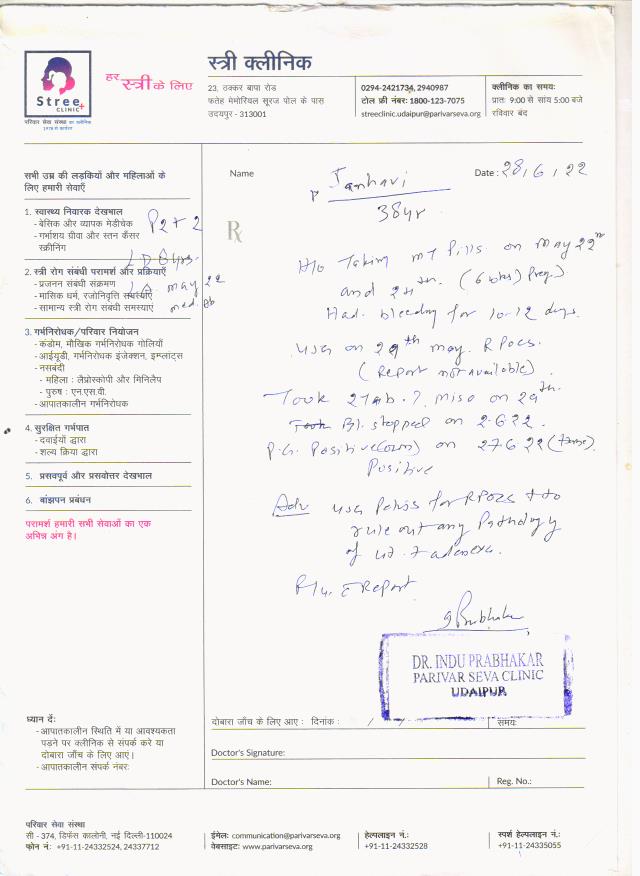 Stree
CLINIC+
परिवार सेवा संस्था का क्लीनिक
1978 से कार्यरत
हर स्त्री के लिए
स्त्री क्लीनिक
23, ठक्कर बापा रोड
फतेह मेमोरियल सूरज पोल के पास
उदयपुर - 313001
0294-2421734, 2940987
टोल फ्री नंबर: 1800-123-7075
streeclinic.udaipur@parivarseva.org
क्लीनिक का समय:
प्रातः 9:00 से सांय 5:00 बजे
रविवार बंद
सभी उम्र की लड़कियों और महिलाओं के
लिए हमारी सेवाएँ
1. स्वास्थ्य निवारक देखभाल
- बेसिक और व्यापक मेडीचेक
- गर्भाशय ग्रीवा और स्तन कैंसर
स्क्रीनिंग
P2+2
LD 8 yrs.
2. स्त्री रोग संबंधी परामर्श और प्रक्रियाएँ
- प्रजनन संबंधी संक्रमण
- मासिक धर्म, रजोनिवृति समस्याएं
- सामान्य स्त्री रोग संबंधी समस्याएं
LA. may 22
med.
3. गर्भनिरोधक/परिवार नियोजन
- कंडोम, मौखिक गर्भनिरोधक गोलियाँ
- आईयूडी, गर्भनिरोधक इंजेक्शन, इम्प्लांट्स
- नसबंदी
- महिला : लैप्रोस्कोपी और मिनिलैप
- पुरुष : एन.एस.वी.
- आपातकालीन गर्भनिरोधक
4. सुरक्षित गर्भपात
- दवाईयों द्धारा
- शल्य क्रिया द्धारा
5. प्रसवपूर्व और प्रसवोत्तर देखभाल
6. बांझपन प्रबंधन
परामर्श हमारी सभी सेवाओं का एक
अभिन्न अंग है।
Name Janhavi
Date : 28/6/22
38yr
Rx
H/o Taking MT Pills. on May 22nd
and 24th. (6 wks) Preg.
Had. bleeding for 10-12 days.
USG on 29th may. RPOCs.
(Report not available).
Took 2 Tab. ?. miso on 29th.
Took Bl. stopped on 2.6.22.
on 27.6.22
Positive
Adv USG Pelvis for RPOCs + to
rule out any Pathology
of ut. + adenexa.
F/u. c Report
DR. INDU PRABHAKAR
PARIVAR SEVA CLINIC
UDAIPUR
ध्यान दें:
- आपातकालीन स्थिति में या आवश्यकता
पड़ने पर क्लीनिक से संपर्क करे या
दोबारा जाँच के लिए आएं।
- आपातकालीन संपर्क नंबर:
दोबारा जाँच के लिए आए : दिनांक : / / समय:
Doctor's Signature:
Doctor's Name: Reg. No.:
परिवार सेवा संस्था
सी - 374, डिफेंस कालोनी, नई दिल्ली-110024
फोन नं: +91-11-24332524, 24337712
ईमेल: communication@parivarseva.org
वेबसाइट: www.parivarseva.org
हेल्पलाइन नं.:
+91-11-24332528
स्पर्श हेल्पलाइन नं.:
+91-11-24335055